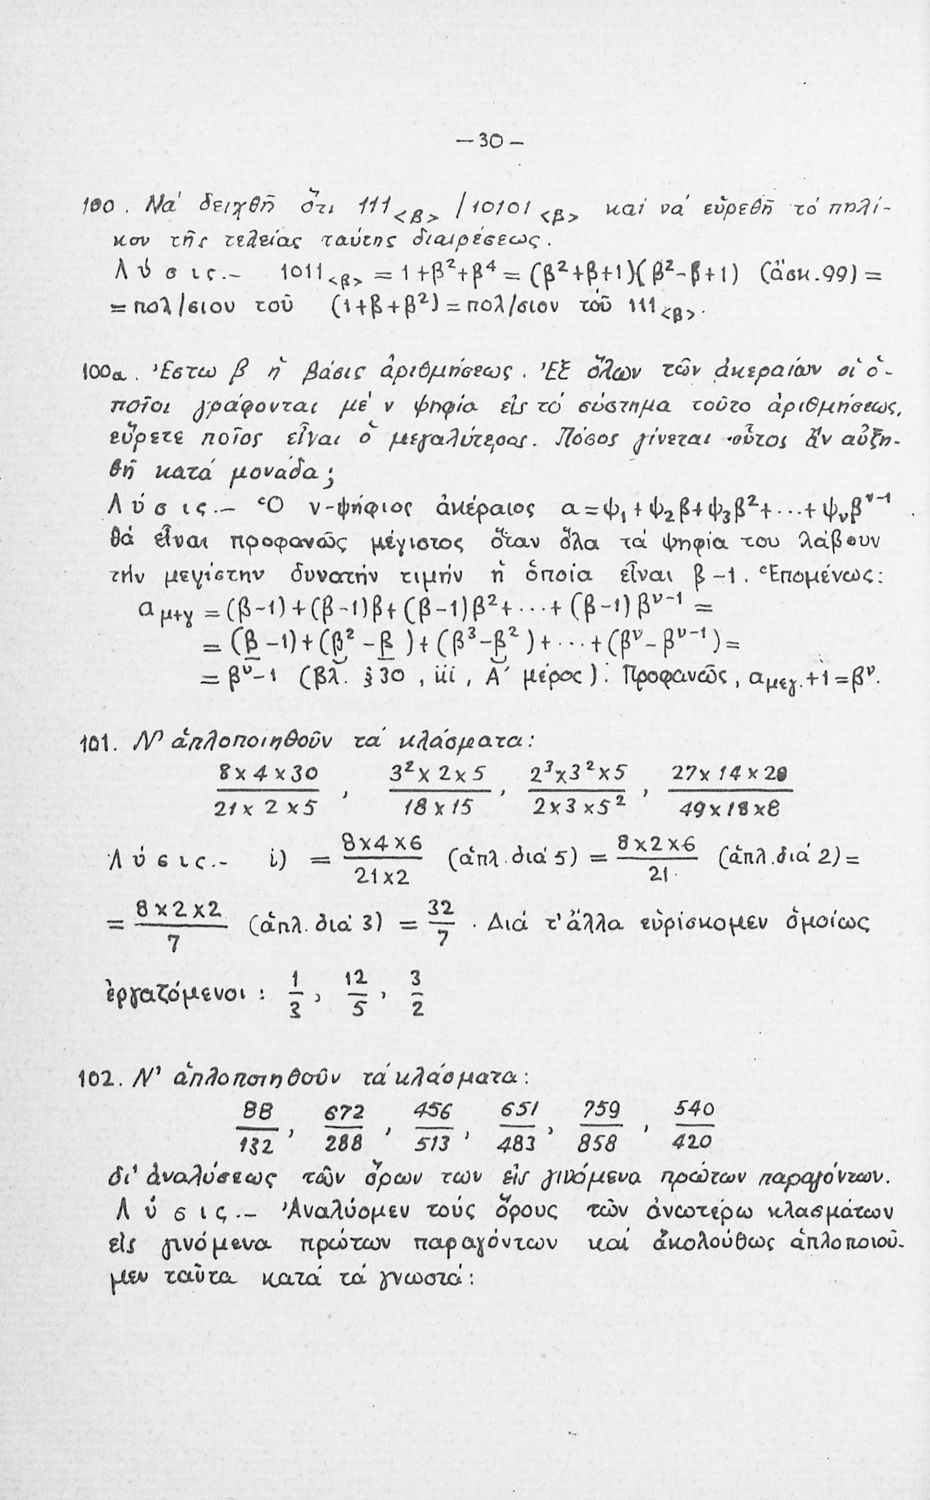 —30—
100. Νά δειχθῆ ὅτι 111<β> /10101<β> καί νά εὑρεθῆ τό πηλί-
κον τῆς τελείας ταύτης διαιρέσεως.
Λύσις.- 1011<β> = 1+β²+β⁴ = (β²+β+1)(β²-β+1) (ἄσκ.99) =
= πολ/σιον τοῦ (1+β+β²) = πολ/σιον τοῦ 111<β>.
100α. Ἔστω β ἡ βάσις ἀριθμήσεως. Ἐξ ὅλων τῶν ἀκεραίων οἱ ὁ-
ποῖοι γράφονται μέ ν ψηφία εἰς τό σύστημα τοῦτο ἀριθμήσεως,
εὕρετε ποῖος εἶναι ὁ μεγαλύτερος. Πόσος γίνεται οὗτος ἄν αὐξη-
θῆ κατά μονάδα;
Λύσις.— Ὁ ν-ψήφιος ἀκέραιος α=ψ₁+ψ₂β+ψ₃β²+...+ψᵥβᵛ⁻¹
θά εἶναι προφανῶς μέγιστος ὅταν ὅλα τά ψηφία του λάβουν
τήν μεγίστην δυνατήν τιμήν ἡ ὁποία εἶναι β-1. Ἑπομένως:
α μ+γ = (β-1)+(β-1)β+(β-1)β²+...+(β-1)βᵛ⁻¹ =
= (β-1)+(β²-β)+(β³-β²)+...+(βᵛ-βᵛ⁻¹)=
= βᵛ-1 (βλ. §30, iii, Α΄ μέρος). Προφανῶς, αμεγ.+1=βᵛ.
101. Ν' ἁπλοποιηθοῦν τά κλάσματα:
8×4×30 , 3²×2×5 , 2³×3²×5 , 27×14×20
21×2×5 18×15 2×3×5² 49×18×8
Λύσις.- i) = 8×4×6/21×2 (ἁπλ.διά 5) = 8×2×6/21 (ἁπλ.διά 2)=
= 8×2×2/7 (ἁπλ. διά 3) = 32/7 . Διά τ' ἄλλα εὑρίσκομεν ὁμοίως
ἐργαζόμενοι : 1/3 , 12/5 , 3/2
102. Ν' ἁπλοποιηθοῦν τά κλάσματα:
88 , 672 , 456 , 651 , 759 , 540
132 288 513 483 858 420
δι' ἀναλύσεως τῶν ὅρων των εἰς γινόμενα πρώτων παραγόντων.
Λύσις.— Ἀναλύομεν τούς ὅρους τῶν ἀνωτέρω κλασμάτων
εἰς γινόμενα πρώτων παραγόντων καί ἀκολούθως ἁπλοποιοῦ-
μεν ταῦτα κατά τά γνωστά: